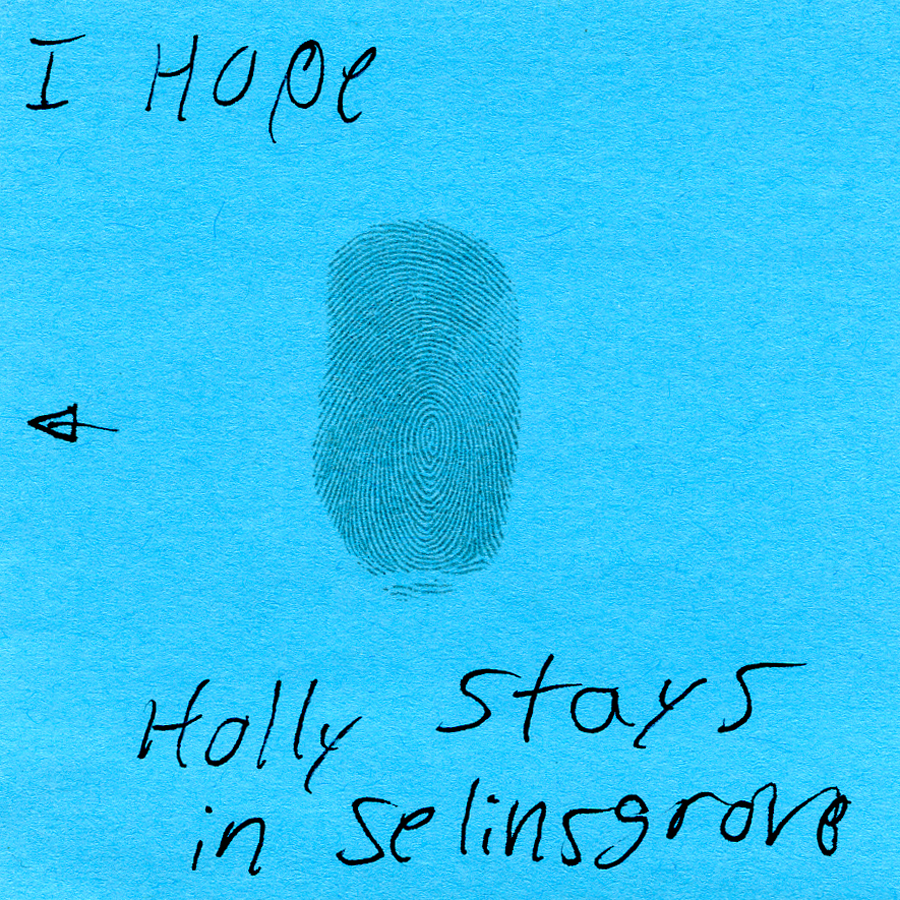 I Hope
Holly Stays
in Selinsgrove